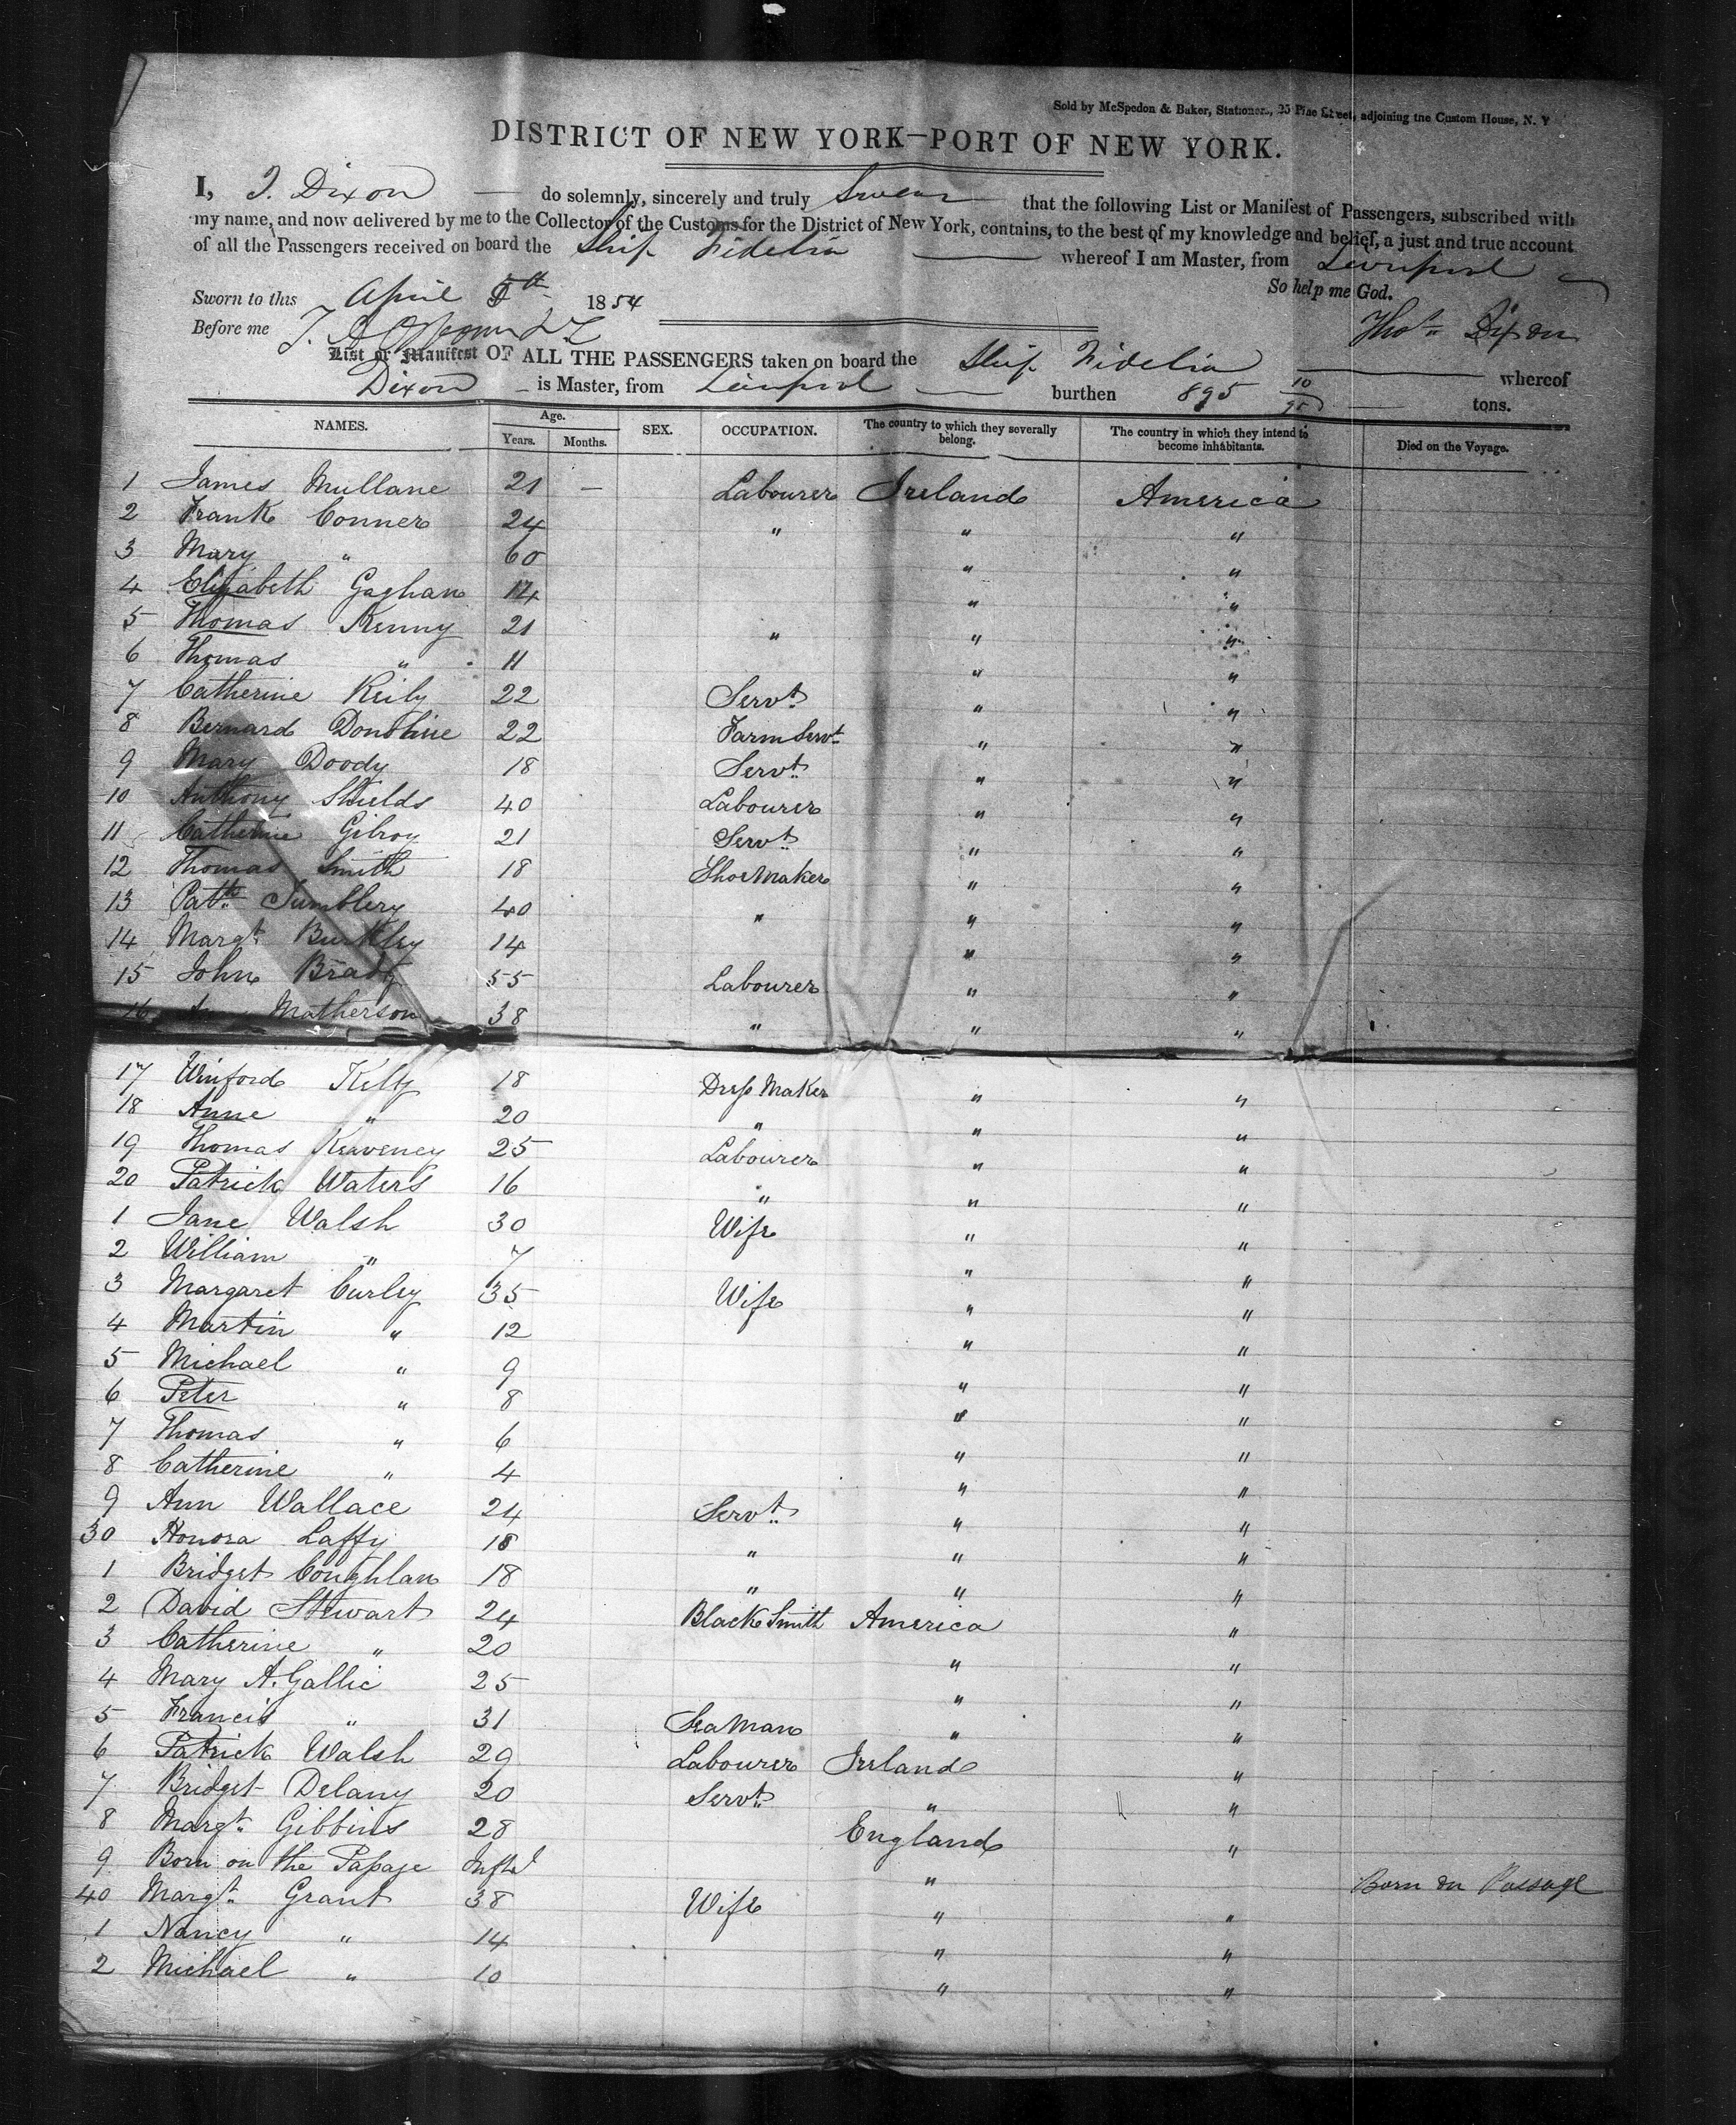 Sold by McSpedon & Baker, Stationers, 25 Pine Street, adjoining the Custom House, N. Y
DISTRICT OF NEW YORK—PORT OF NEW YORK.
I, T. Dixon do solemnly, sincerely and truly Swear that the following List or Manifest of Passengers, subscribed with
my name, and now delivered by me to the Collector of the Customs for the District of New York, contains, to the best of my knowledge and belief, a just and true account
of all the Passengers received on board the Ship Fidelia whereof I am Master, from Liverpool
So help me God.
Sworn to this April 5th 1854
Thos Dixon
Before me
List or Manifest OF ALL THE PASSENGERS taken on board the Ship Fidelia whereof
Dixon is Master, from Liverpool burthen 895 10/95 tons.
NAMES. Age. Years. Months. SEX. OCCUPATION. The country to which they severally belong. The country in which they intend to become inhabitants. Died on the Voyage.
1 James Mullane 21 — Labourer Ireland America
2 Frank Conner 24 " " "
3 Mary " 60 " "
4 Elizabeth Gaghan 14 " "
5 Thomas Kenny 21 " " "
6 Thomas " 11 " "
7 Catherine Keily 22 Servt " "
8 Bernard Donohue 22 Farm Servt " "
9 Mary Doody 18 Servt " "
10 Anthony Shields 40 Labourer " "
11 Catherine Gilroy 21 Servt " "
12 Thomas Smith 18 Shoemaker " "
13 Patk Tumblery 40 " " "
14 Margt Burkley 14 " "
15 John Brady 55 Labourer " "
16 Matherson 38 " " "
17 Winford Kelly 18 Dress Maker " "
18 Anne " 20 " " "
19 Thomas Keaveney 25 Labourer " "
20 Patrick Waters 16 " " "
1 Jane Walsh 30 Wife " "
2 William " 7 " "
3 Margaret Curley 35 Wife " "
4 Martin " 12 " "
5 Michael " 9 " "
6 Peter " 8 " "
7 Thomas " 6 " "
8 Catherine " 4 " "
9 Ann Wallace 24 Servt " "
30 Honora Laffy 18 " " "
1 Bridget Coughlan 18 " " "
2 David Stewart 24 Black Smith America "
3 Catherine " 20 " "
4 Mary A. Gallic 25 " "
5 Francis " 31 Seaman " "
6 Patrick Walsh 29 Labourer Ireland "
7 Bridget Delany 20 Servt " "
8 Margt Gibbins 28 England "
9 Born on the Passage Inft " Born on Passage
40 Margt Grant 38 Wife " "
1 Nancy " 14 " "
2 Michael " 10 " "